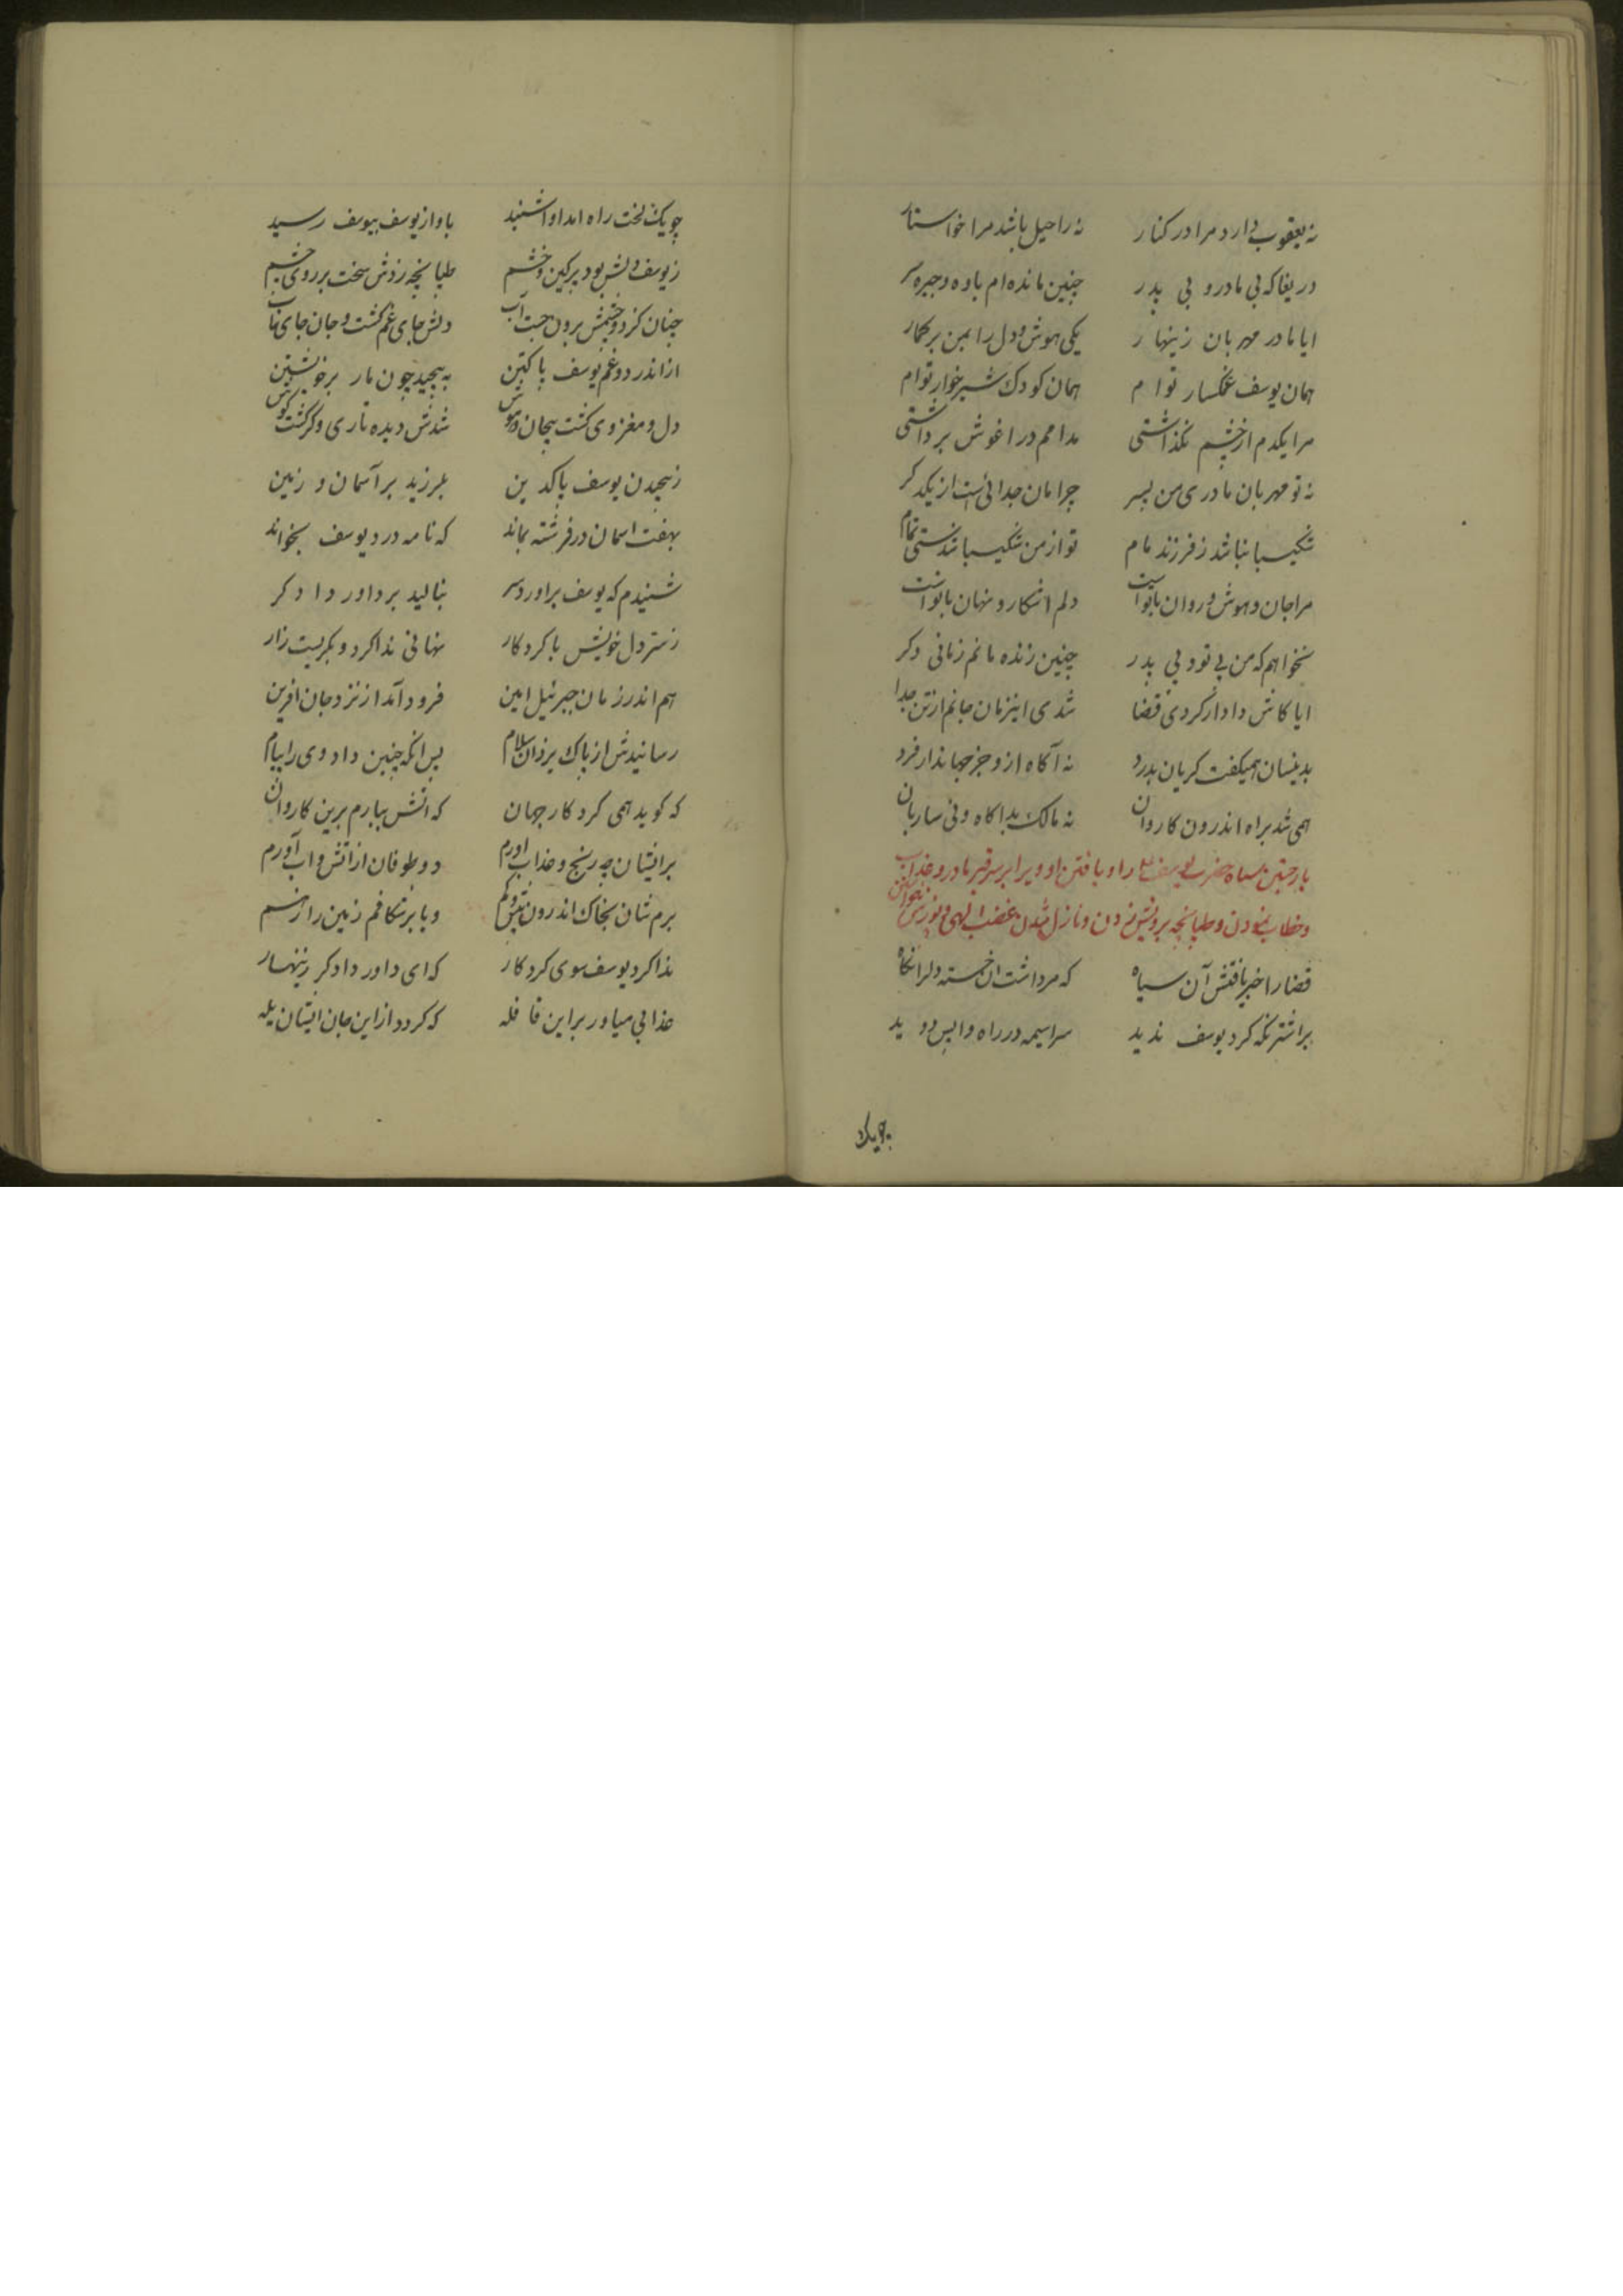 نه یعقوب دارد مرا در کنار نه راحیل باشد مرا خواستار
دریغا که بی مادر و بی پدر چنین مانده ام باوه و جیره سر
ایا مادر مهربان زینهار یکی هوش و دل را بمن برکمار
همان یوسف غمکسار توام همان کودک شیر خوار توام
مرا یکدم از چشم نکذاشتی مدامم در اغوش برداشتی
نه تو مهربان مادری من پسر چرامان جدائی است از یکدکر
شکیبا نباشد ز فرزند مام تو از من شکیبا شدستی تمام
مرا جان و هوش و روان با تو است دلم اشکار و نهان با تو است
نخواهم که من بی تو و بی پدر چنین زنده مانم زمانی دکر
ایا کاش دادار کردی قضا شدی اینزمان جانم از تن جدا
بدینسان همیکفت کریان بدرد نه آکاه ازو جز جهاندار فرد
همی شد براه اندرون کاروان نه مالک بد اکاه و نی ساربان
باز جستن سیاه حضرت یوسف ع را و یافتن او ویرا بر سر قبر مادر و عتاب
و خطاب نمودن و طپانچه بر رویش زدن و نازل شدن غضب الهی
قضا را خبر یافتش آن سیاه که مر داشت ان خسته دلرا نکاه
بر اشتر نکه کرد یوسف ندید سراسیمه در راه واپس دوید
چو یک
چو یک لخت راه امد اوا شنید باواز یوسف بیوسف رسید
ز یوسف دلش بود پر کین و خشم طپانچه زدش سخت بر روی و چشم
چنان کز دو چشمش برون جست آب دلش جای غم کشت و جان جای تاب
از اندر دو غم یوسف پاکتن به پیچید چون مار بر خویشتن
دل و مغز وی کشت بیجان و هوش شدش دیده تاری و کر کشت کوش
ز پیچدن یوسف پاکدین بلرزید بر آسمان و زمین
بهفت اسمان در فرشته نماند که نامه درد یوسف بخواند
شنیدم که یوسف براورد سر بنالید بر داور دادکر
ز ستر دل خویش با کردکار نهانی ندا کرد و بکریست زار
هم اندر زمان جبرئیل امین فرود آمد از نزد جان افرین
رسانیدش از پاک یزدان سلام پس انکه چنین داد وی را پیام
که کوید همی کردکار جهان که اتش ببارم برین کاروان
بر ایشان چه رنج و عذاب اورم دو طوفان از اتش و اب آورم
برم شان بخاک اندرون بیش و کم و یا بر شکافم زمین را ز هم
ندا کرد یوسف سوی کردکار که ای داور دادکر زینهار
عذابی میاور بر این قافله که کردد از این جان ایشان یله